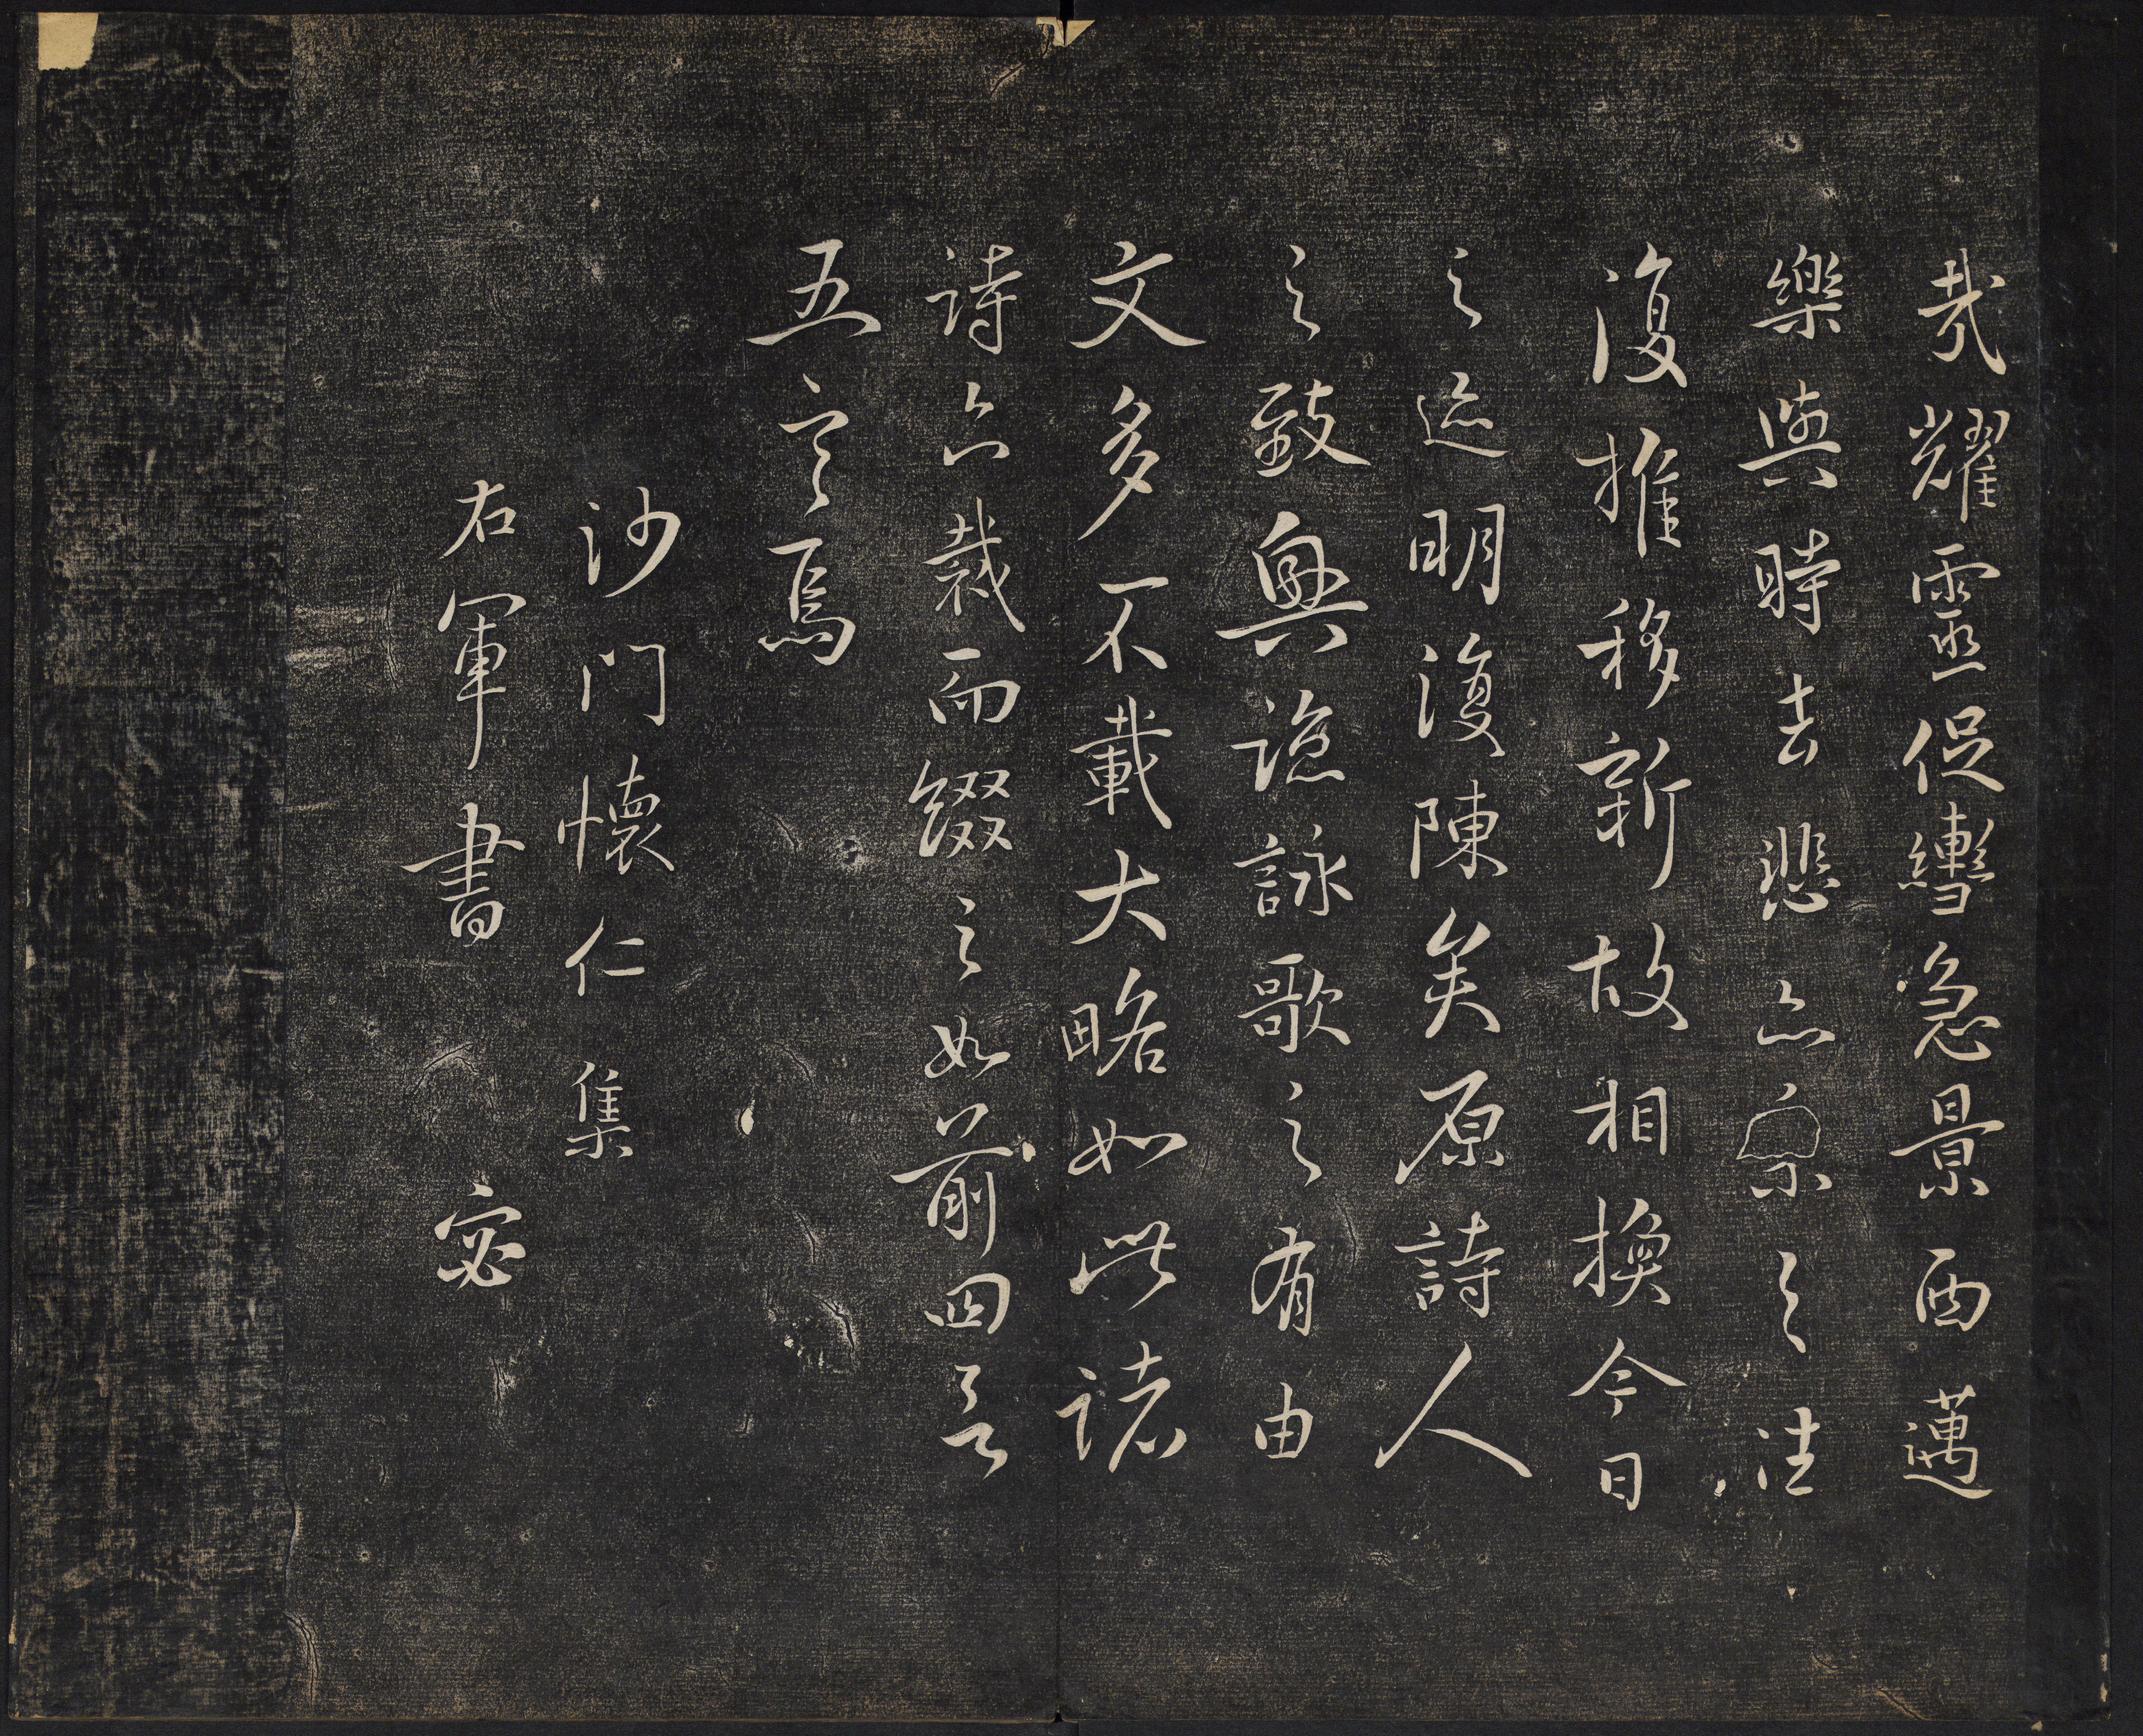 哉耀靈促轡急景西邁
樂與時去悲亦系之往
復推移新故相換今日
之迹明復陳矣原詩人
之致興諒詠歌之有由
文多不載大略如此諸
詩亦裁而綴之如前四言
五言焉
沙門懷仁集
右軍書 密